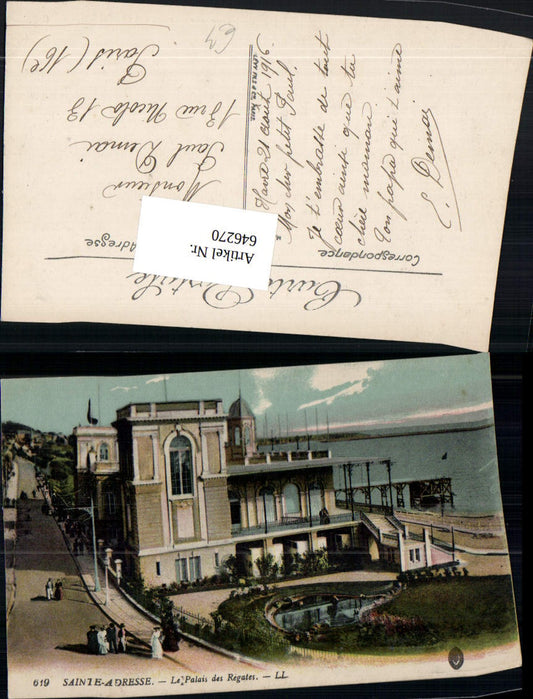 Carte Postale
Correspondance
Adresse
Havre 21 Aout 1916
Mon cher petit Paul.
Je t'embrasse de tout
cœur ainsi que ta
chère maman
Ton papa qui t'aime
E. Demai
Monsieur
Paul Demai
13 rue Nicolo 13
Paris (16e)
Artikel Nr.
646270
619 SAINTE-ADRESSE. — Le Palais des Régates. — LL